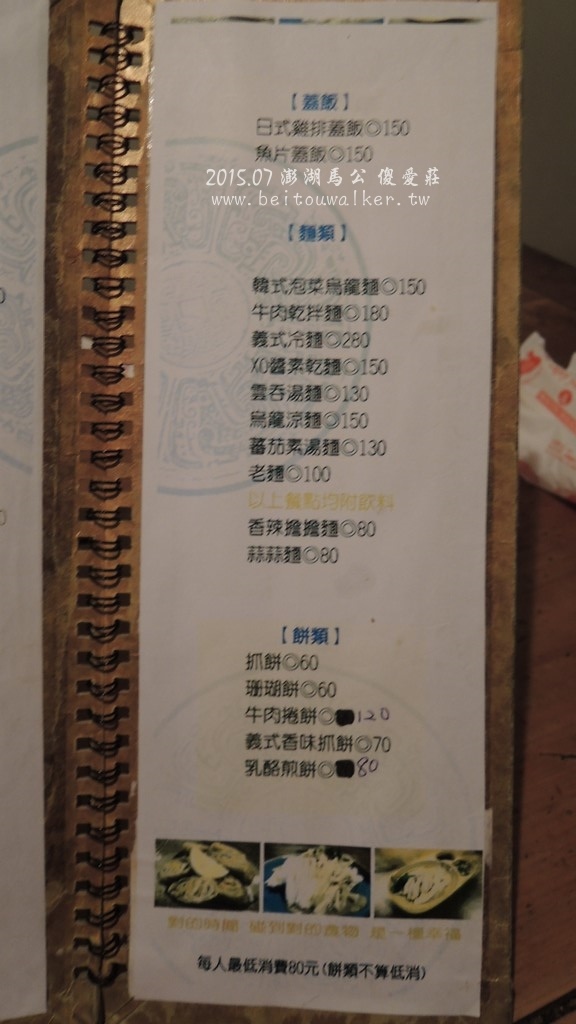 【蓋飯】
日式雞排蓋飯◎150
魚片蓋飯◎150
2015.07 澎湖馬公 傻愛莊
www.beitouwalker.tw
【麵類】
韓式泡菜烏龍麵◎150
牛肉乾拌麵◎180
義式冷麵◎280
XO醬素乾麵◎150
雲吞湯麵◎130
烏龍涼麵◎150
蕃茄素湯麵◎130
老麵◎100
以上餐點均附飲料
香辣擔擔麵◎80
蒜蒜麵◎80
【餅類】
抓餅◎60
珊瑚餅◎60
牛肉捲餅◎120
義式香味抓餅◎70
乳酪煎餅◎80
對的時間 碰到對的食物 是一種幸福
每人最低消費80元(餅類不算低消)